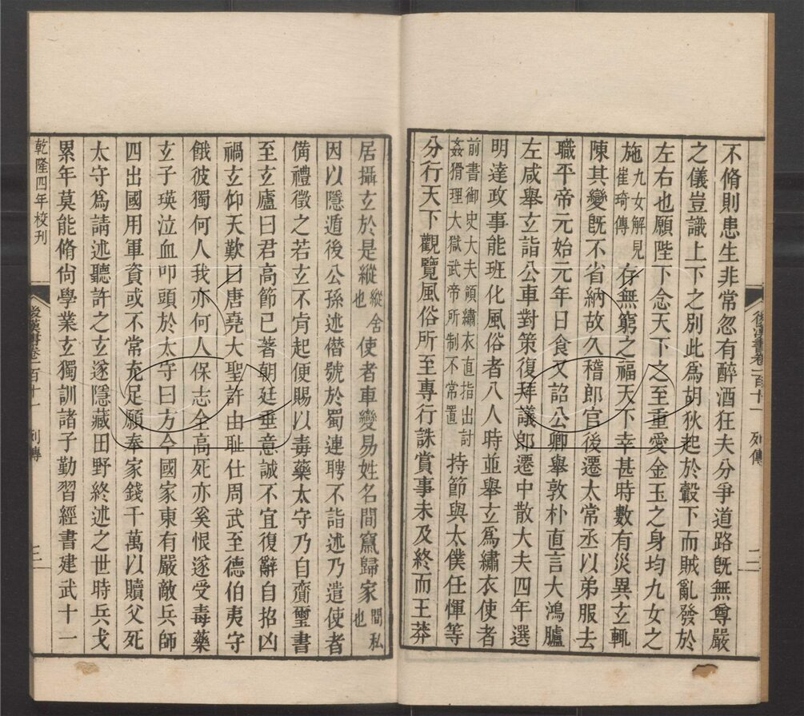 不脩則患生非常忽有醉酒狂夫分爭道路旣無尊嚴
之儀豈識上下之別此爲胡狄起於轂下而賊亂發於
左右也願陛下念天下之至重愛金玉之身均九女之
施九女解見崔琦傳存無窮之福天下幸甚時數有災異玄輒
陳其變旣不省納故久稽郎官後遷太常丞以弟服去
職平帝元始元年日食又詔公卿舉敦朴直言大鴻臚
左咸舉玄詣公車對策復拜議郎遷中散大夫四年選
明達政事能班化風俗者八人時並舉玄爲繡衣使者
前書御史大夫領繡衣直指出討姦猾理大獄武帝所制不常置持節與太僕任惲等
分行天下觀覽風俗所至專行誅賞事未及終而王莽
後漢書卷一百十一 列傳 二
居攝玄於是縱縱舍也使者車變易姓名間竄歸家間私也
因以隱遁後公孫述僭號於蜀連聘不詣述乃遣使者
備禮徵之若玄不肎起便賜以毒藥太守乃自齎璽書
至玄廬曰君高節已著朝廷垂意誠不宜復辭自招凶
禍玄仰天歎曰唐堯大聖許由耻仕周武至德伯夷守
餓彼獨何人我亦何人保志全高死亦奚恨遂受毒藥
玄子瑛泣血叩頭於太守曰方今國家東有嚴敵兵師
四出國用軍資或不常充足願奉家錢千萬以贖父死
太守爲請述聽許之玄遂隱藏田野終述之世時兵戈
累年莫能脩尙學業玄獨訓諸子勤習經書建武十一
乾隆四年校刊
後漢書卷一百十一 列傳 三